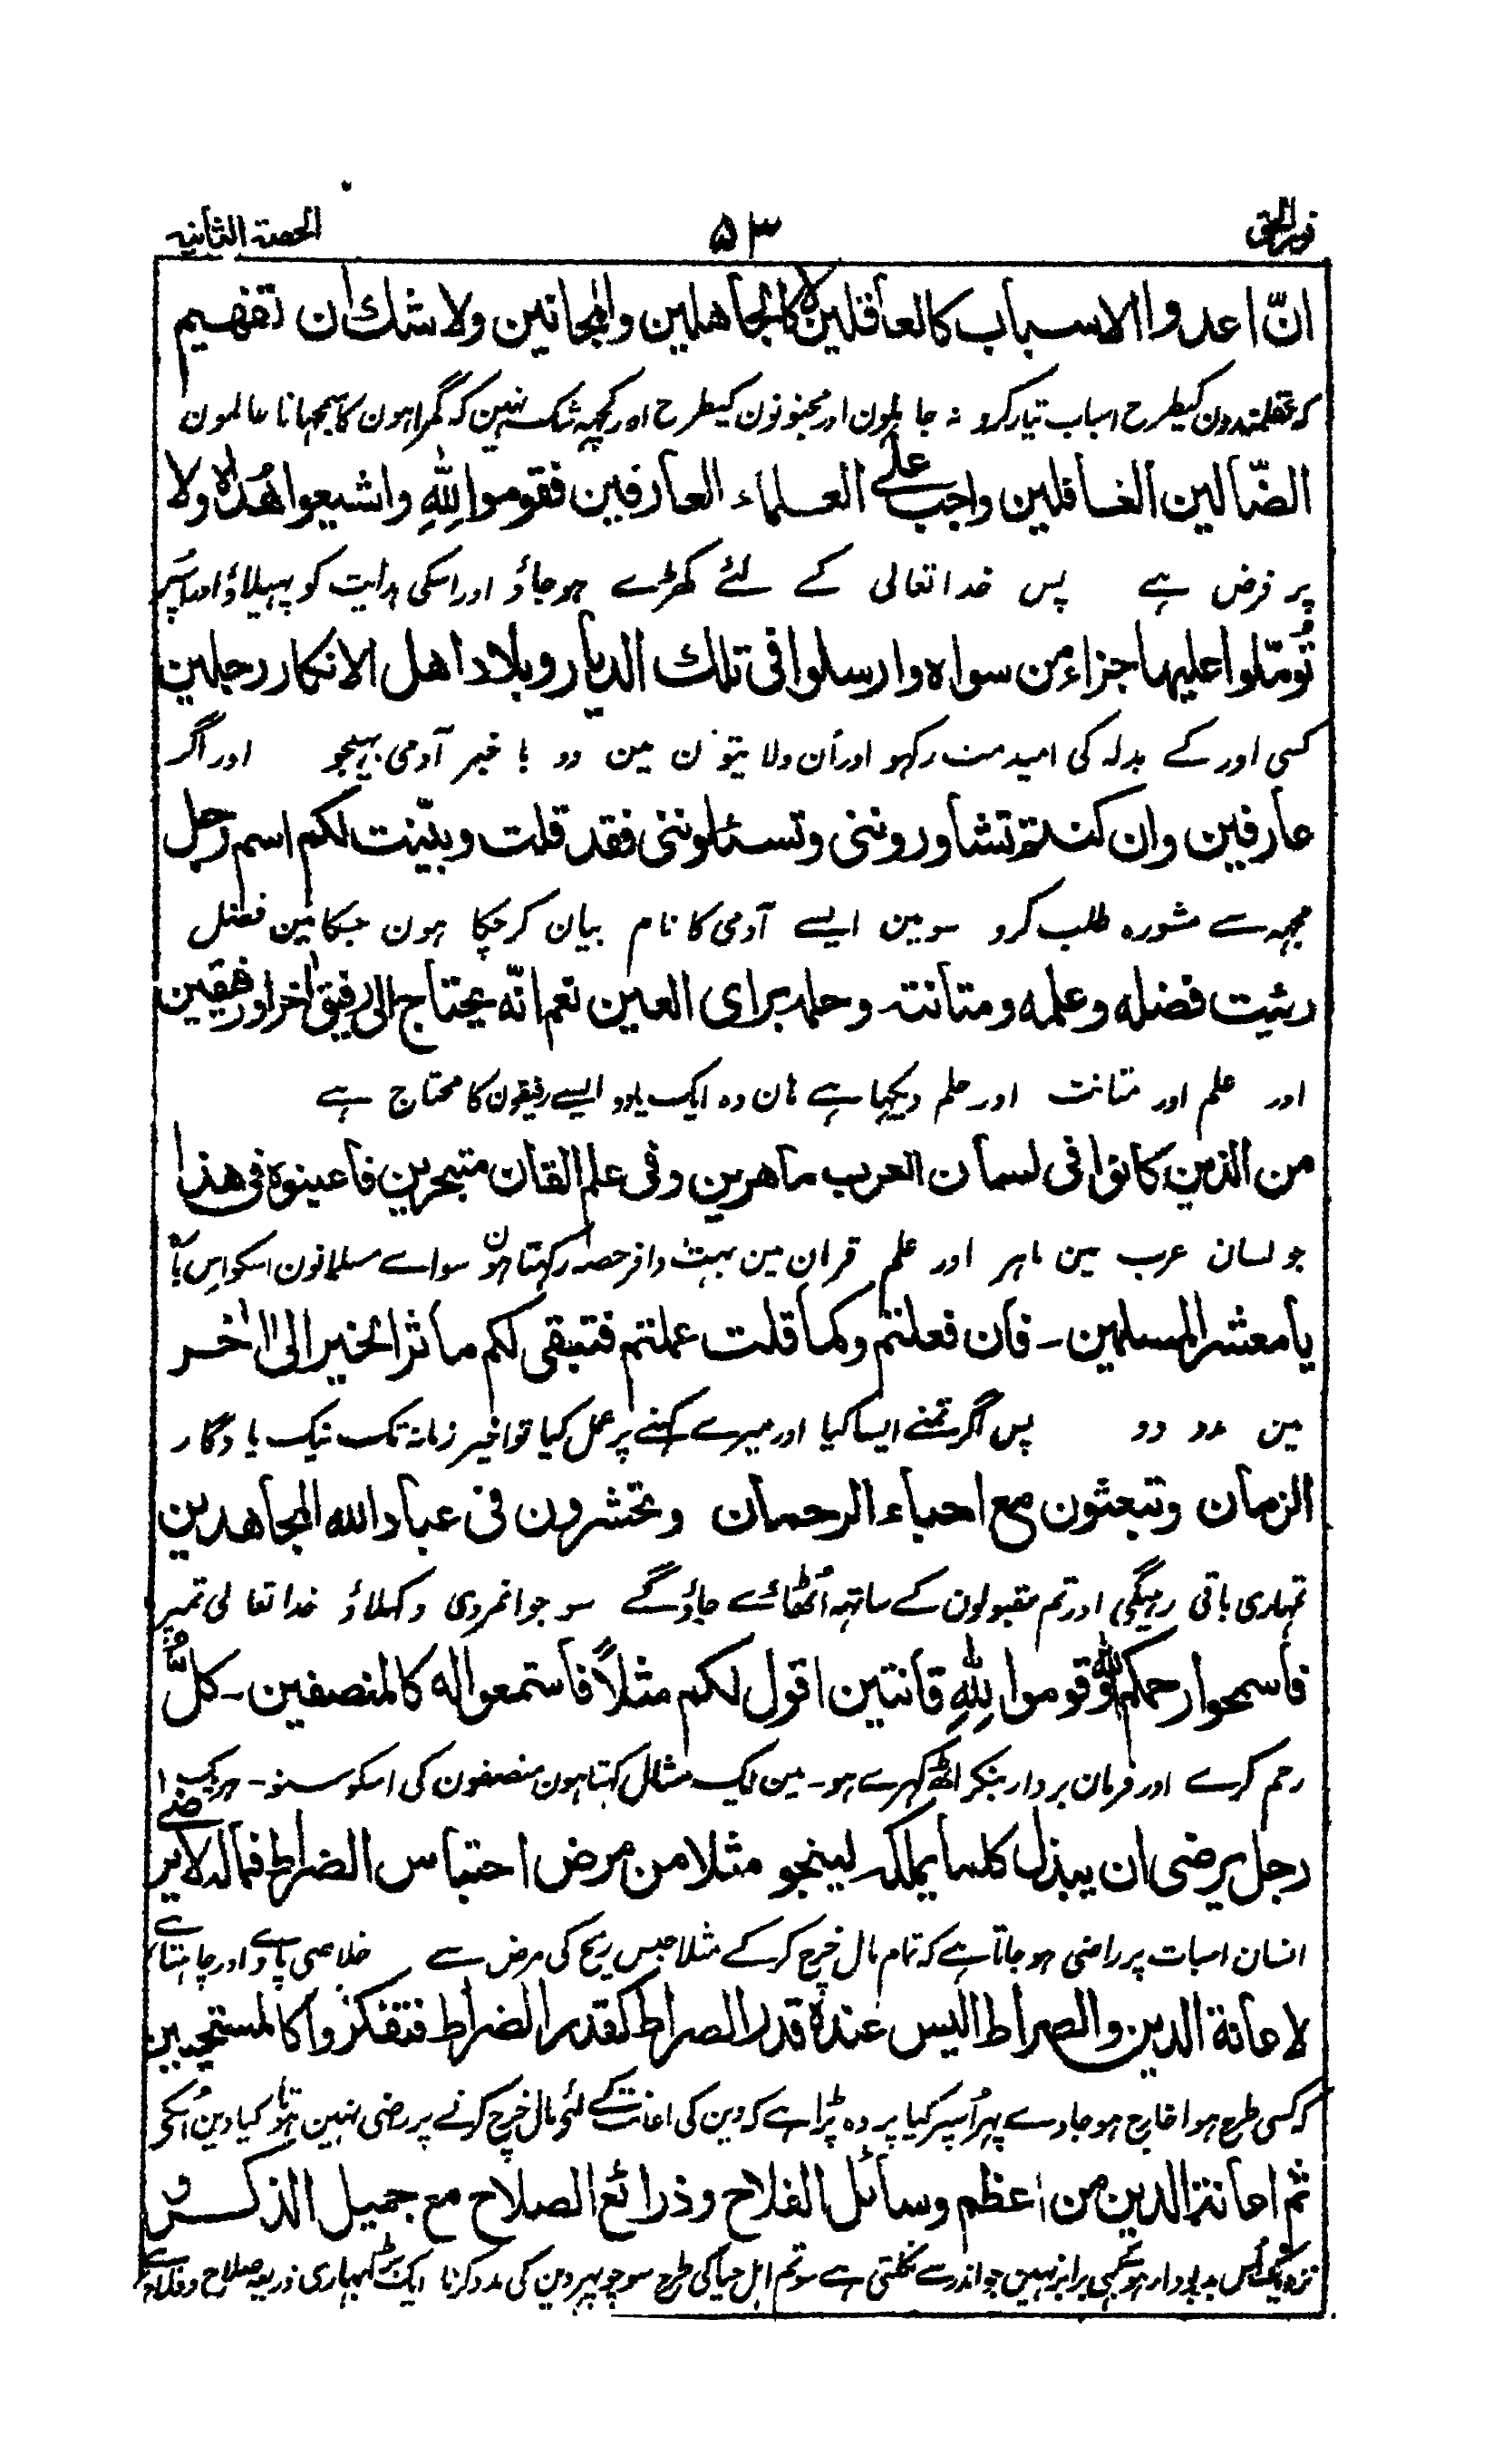 نور الحق ۵۳ الحصة الثانية
انّ اعدوا الاسباب كالعاقلين لا كالجاهلين والمجانين ولا شك ان تفهيم
کہ عقلمندون کیطرح اسباب تیار کرو نہ جاہلون اور مجنونون کیطرح اور کچہہ شک نہین کہ گمراہون کا سمجہانا عالمون
الضّالين الغافلين واجب على العلماء العارفين فقوموا لِلّٰهِ واشيعوا هُداه ولا
پر فرض ہے پس خدا تعالی کے لئے کھڑے ہو جاؤ اور اسکی ہدایت کو پہیلاؤ اور اسپر
تُؤمّلوا عليها جزاء من سواه وارسلوا فى تلك الديار وبلاد اهل الانكار رجلين
کسی اور کے بدلہ کی امید مت رکہو اور اُن ولایتون مین دو با خبر آدمی بہیجو اور اگر
عارفين وان كنتم تشاوروننى وتسئلوننى فقد قلت وبيّنت لكم اسم رجل
مجہہ سے مشورہ طلب کرو سو مین ایسے آدمی کا نام بیان کر چکا ہون جسکا مین فضل
رئيت فضله وعلمه ومتانته وحلمه براى العين نعم انّه يحتاج الى رفيق اٰخر او رفيقين
اور علم اور متانت اور حلم دیکہا ہے ہان وہ ایک یا دو ایسے رفیقون کا محتاج ہے
من الذين كانوا فى لسان العرب ماهرين وفى علم القران متبحرين فاعينوه فى هذا
جو لسان عرب مین ماہر اور علم قران مین بہت وافر حصہ رکہتا ہون سو اے مسلمانون اسکو اس بات
يا معشر المسلمين ۔ فان فعلتم وكما قلت عملتم فتبقى لكم ماثر الخير الى اٰخر
مین مدد دو پس اگر تمنے ایسا کیا اور میرے کہنے پر عمل کیا تو اخیر زمانہ تک نیک یادگار
الزمان وتبعثون مع احباء الرحمان وتحشرون فى عباد الله المجاهدين
تمہاری باقی رہیگی اور تم مقبولون کے ساتہہ اُٹھائے جاؤ گے سو جوانمردی دکہلاؤ خدا تعالی تمپر
فاسمحوا رحمكم الله وقوموا لِلّٰهِ قانتين اقول لكم مثلًا فاستمعوا له كالمنصفين ۔ كلُّ
رحم کرے اور فرمان بردار بنکر اٹھ کہڑے ہو ۔ مین ایک مثال کہتا ہون منصفون کی اسکو سنو ۔ ہریک
رجل يرضى ان يبذل كلما يملكه لينجو مثلا من مرض احتباس الضراط فما له لا يرضى
انسان اسبات پر راضی ہو جاتا ہے کہ تمام مال خرچ کر کے مثلا حبس ریح کی مرض سے خلاصی پاوے اور چاہتا ہے
لاعانة الدين والصراط اليس عنده قدر الصراط كقدر الضراط فتفكروا كالمستحيين
کہ کسی طرح ہوا خارج ہو جاوے پہر اُسپر کیا پردہ پڑا ہے کہ دین کی اعانت کے لئے مال خرچ کرنے پر رضی نہین ہوتا کیا دین اُسکے
ثم اعانة الدين من اعظم وسائل الفلاح وذرائع الصلاح مع جميل الذكر
نزدیک اُس بدبودار ہوا کے بہی برابر نہین جو اندر سے نکلتی ہے سو تم اہل حیا کی طرح سوچو پہر دین کی مدد کرنا ایک بڑا بہاری ذریعہ صلاح و فلاح